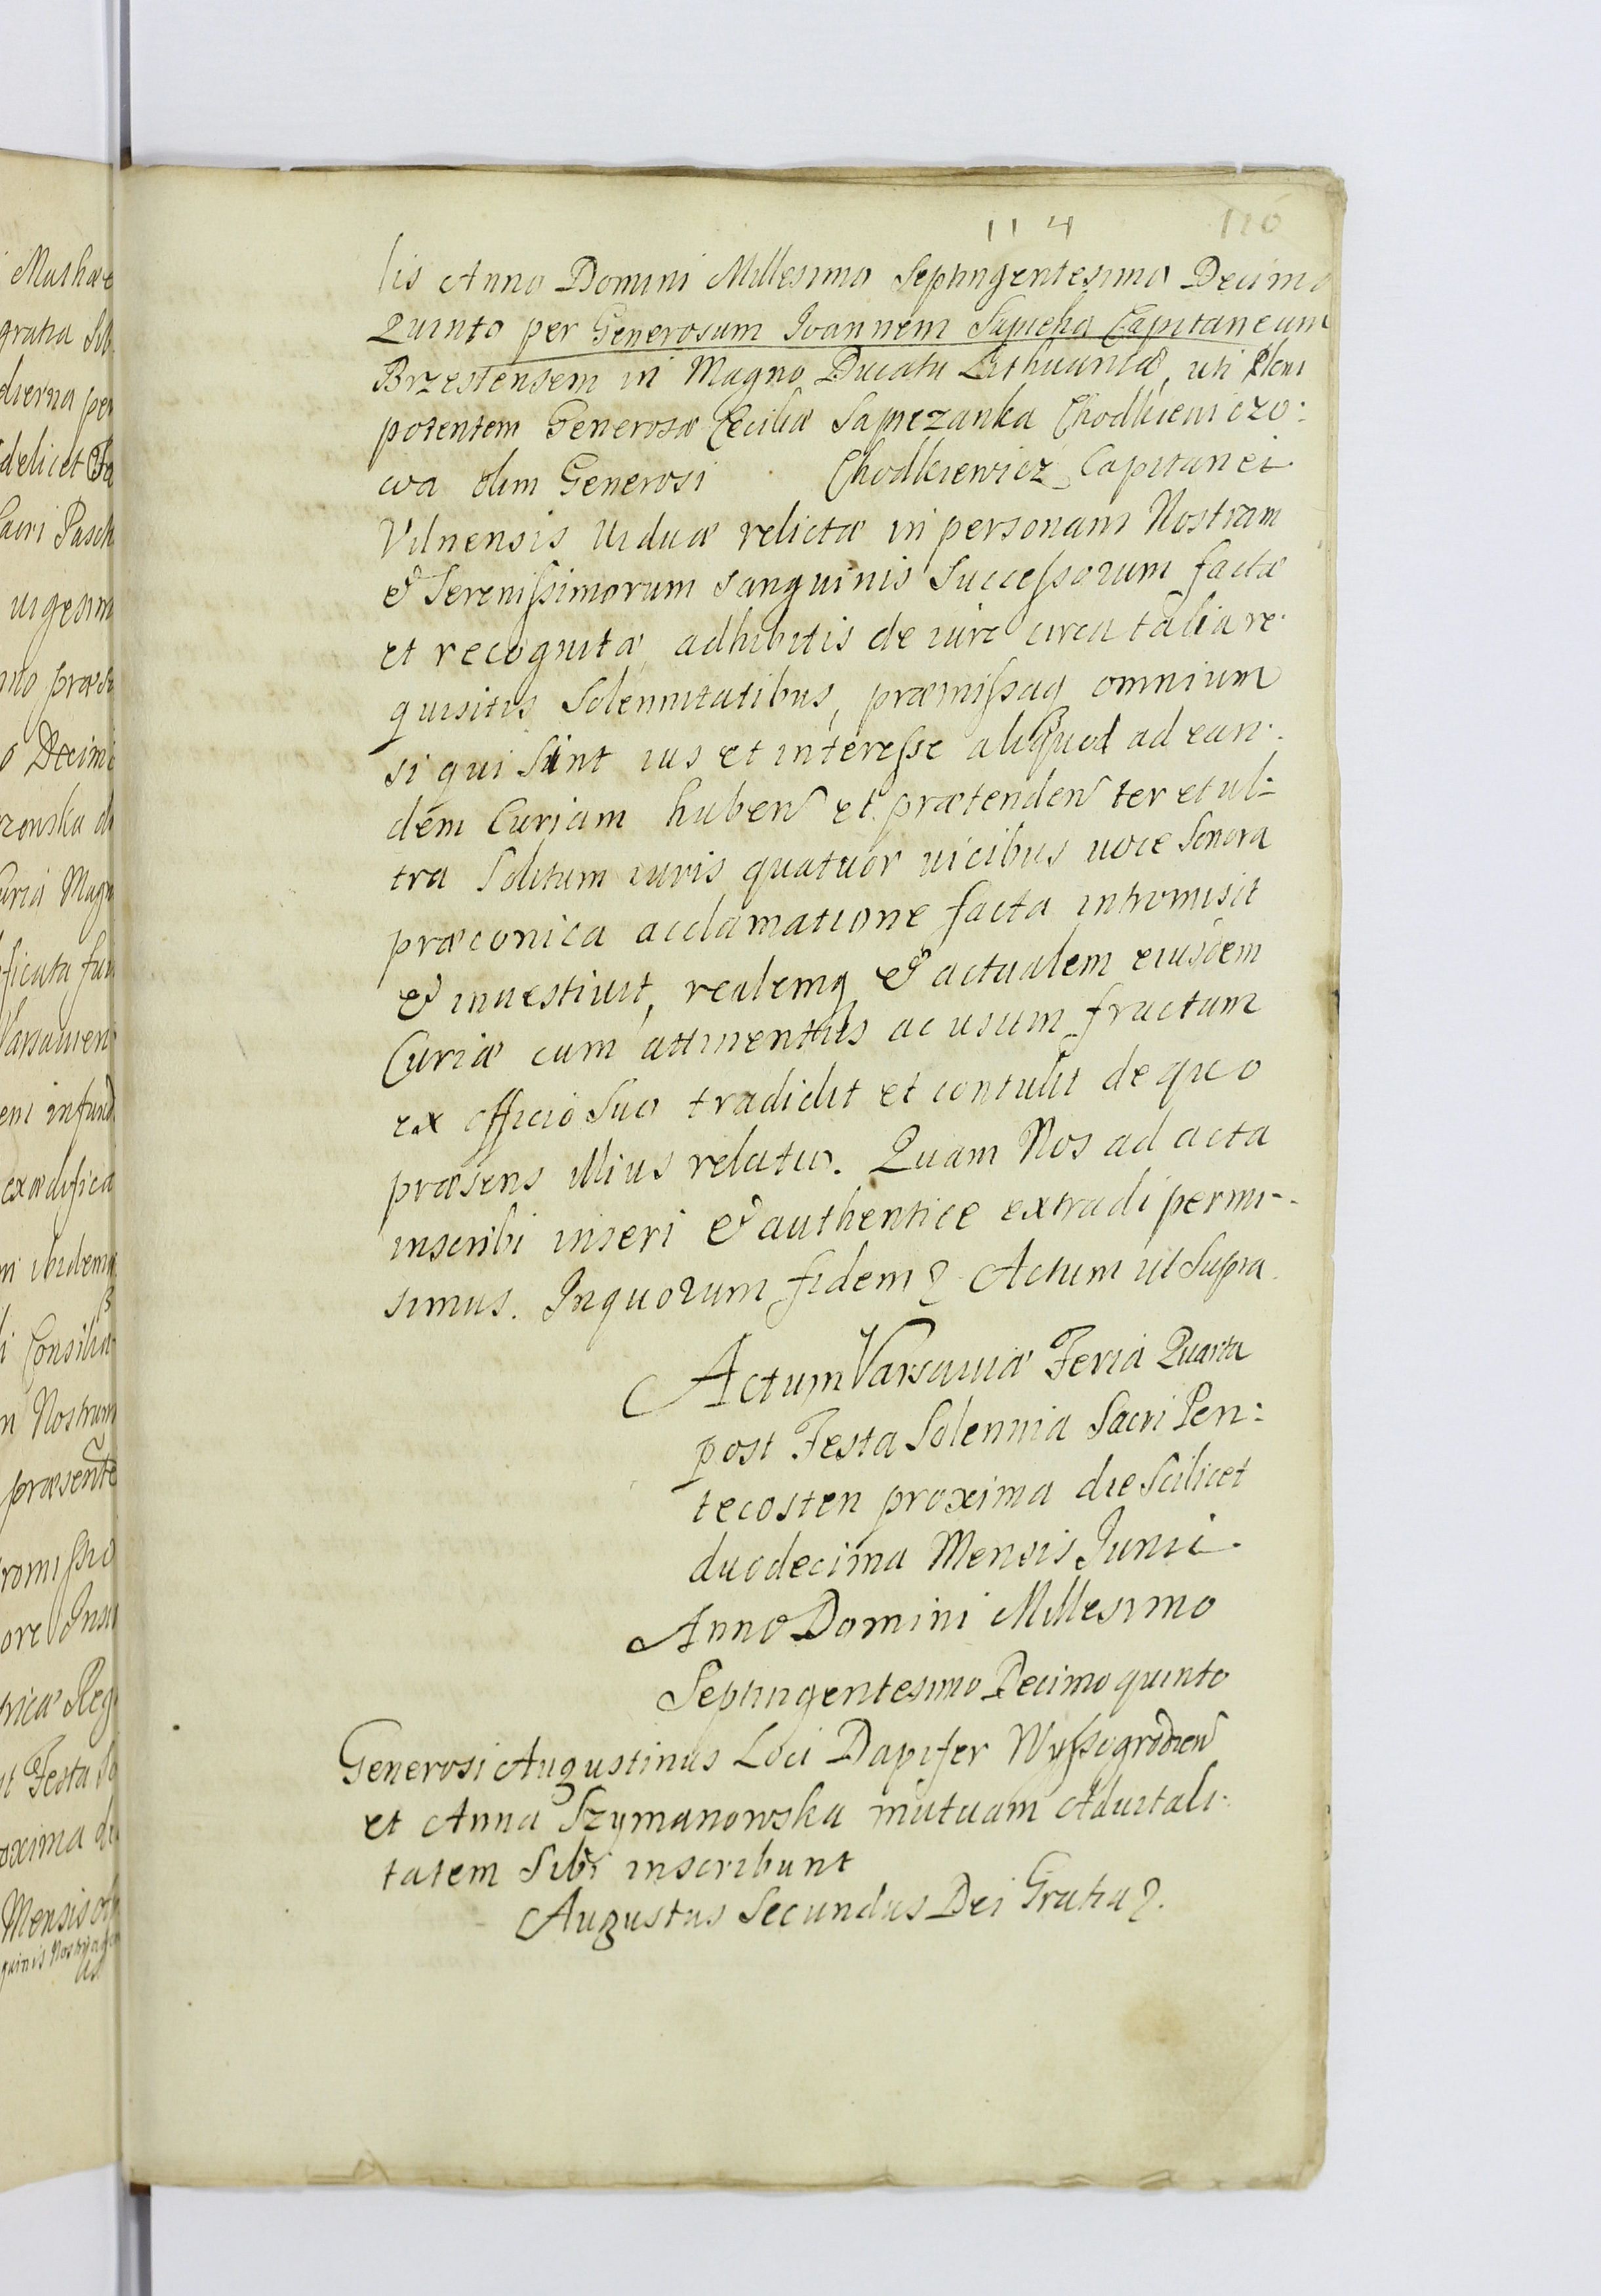 114 116
lis Anno Domini Millesimo Septingentesimo Decimo
Quinto per Generosum Ioannem Sapieha Capitaneum
Brzestensem in Magno Ducatu Lithuaniæ, uti pleni
potentem Generosæ Cecilia Sapiezanka Chodkiewiczo:
wa olim Generosi Chodkiewicz Capitanei
Vilnensis viduæ relictæ in personam Nostram
& Serenissimorum sanguinis Successorum factæ
et recognitæ, adhibitis de iure circa talia re:
quisitis Solennitatibus, præmissaq omnium
si qui sint ius et interesse aliquod ad ean:
dem Curiam haben et prætenden ter et ul:
tra Solitum iuris quatuor vicibus voce Sonora
præconica acclamatione facta intromisit
& investivit, realemq & actualem eiusdem
Curiæ cum attinentiis ac usum fructum
ex officio Suo tradidit et contulit de quo
præsens illius relatio. Quam Nos ad acta
inscribi inseri & authentice extradi permi-
simus. In quorum fidem Actum ut Supra.
Actum Varsaviæ Feria Quarta
post Festa Solennia Sacri Pen:
tecosten proxima die Scilicet
duodecima Mensis Junii
Anno Domini Millesimo
Septingentesimo Decimo quinto
Generosi Augustinus Loci Dapifer Wyssogrodien
et Anna Szymanowska mutuam Advitali:
tatem Sibi inscribunt
Augustus Secundus Dei Gratia
Mathæ
gratia
dierna per
delicet
Sacri Pasch
vigesim
o Decim
zowska
Curia Mag
ficuta fun
Varsavien
eni infund
exædifica
ni ibidemq
i Consilia
n Nostrum
præsente
romissio
ore Insu
rica Reg
t Festa So
oxima d
Mensis